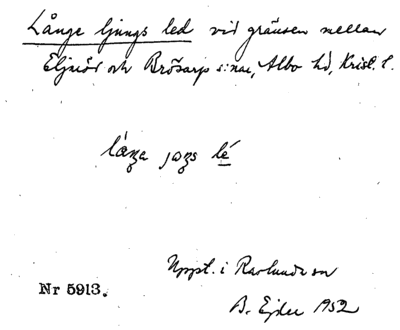 Långe ljungs led vid gränsen mellan
Eljaröd och Brösarps s:nar, Albo hd, Krist. l.
låŋa jɔŋs lé
Uppt. i Ravlunda sn
B. Ejder 1952
Nr 5913.